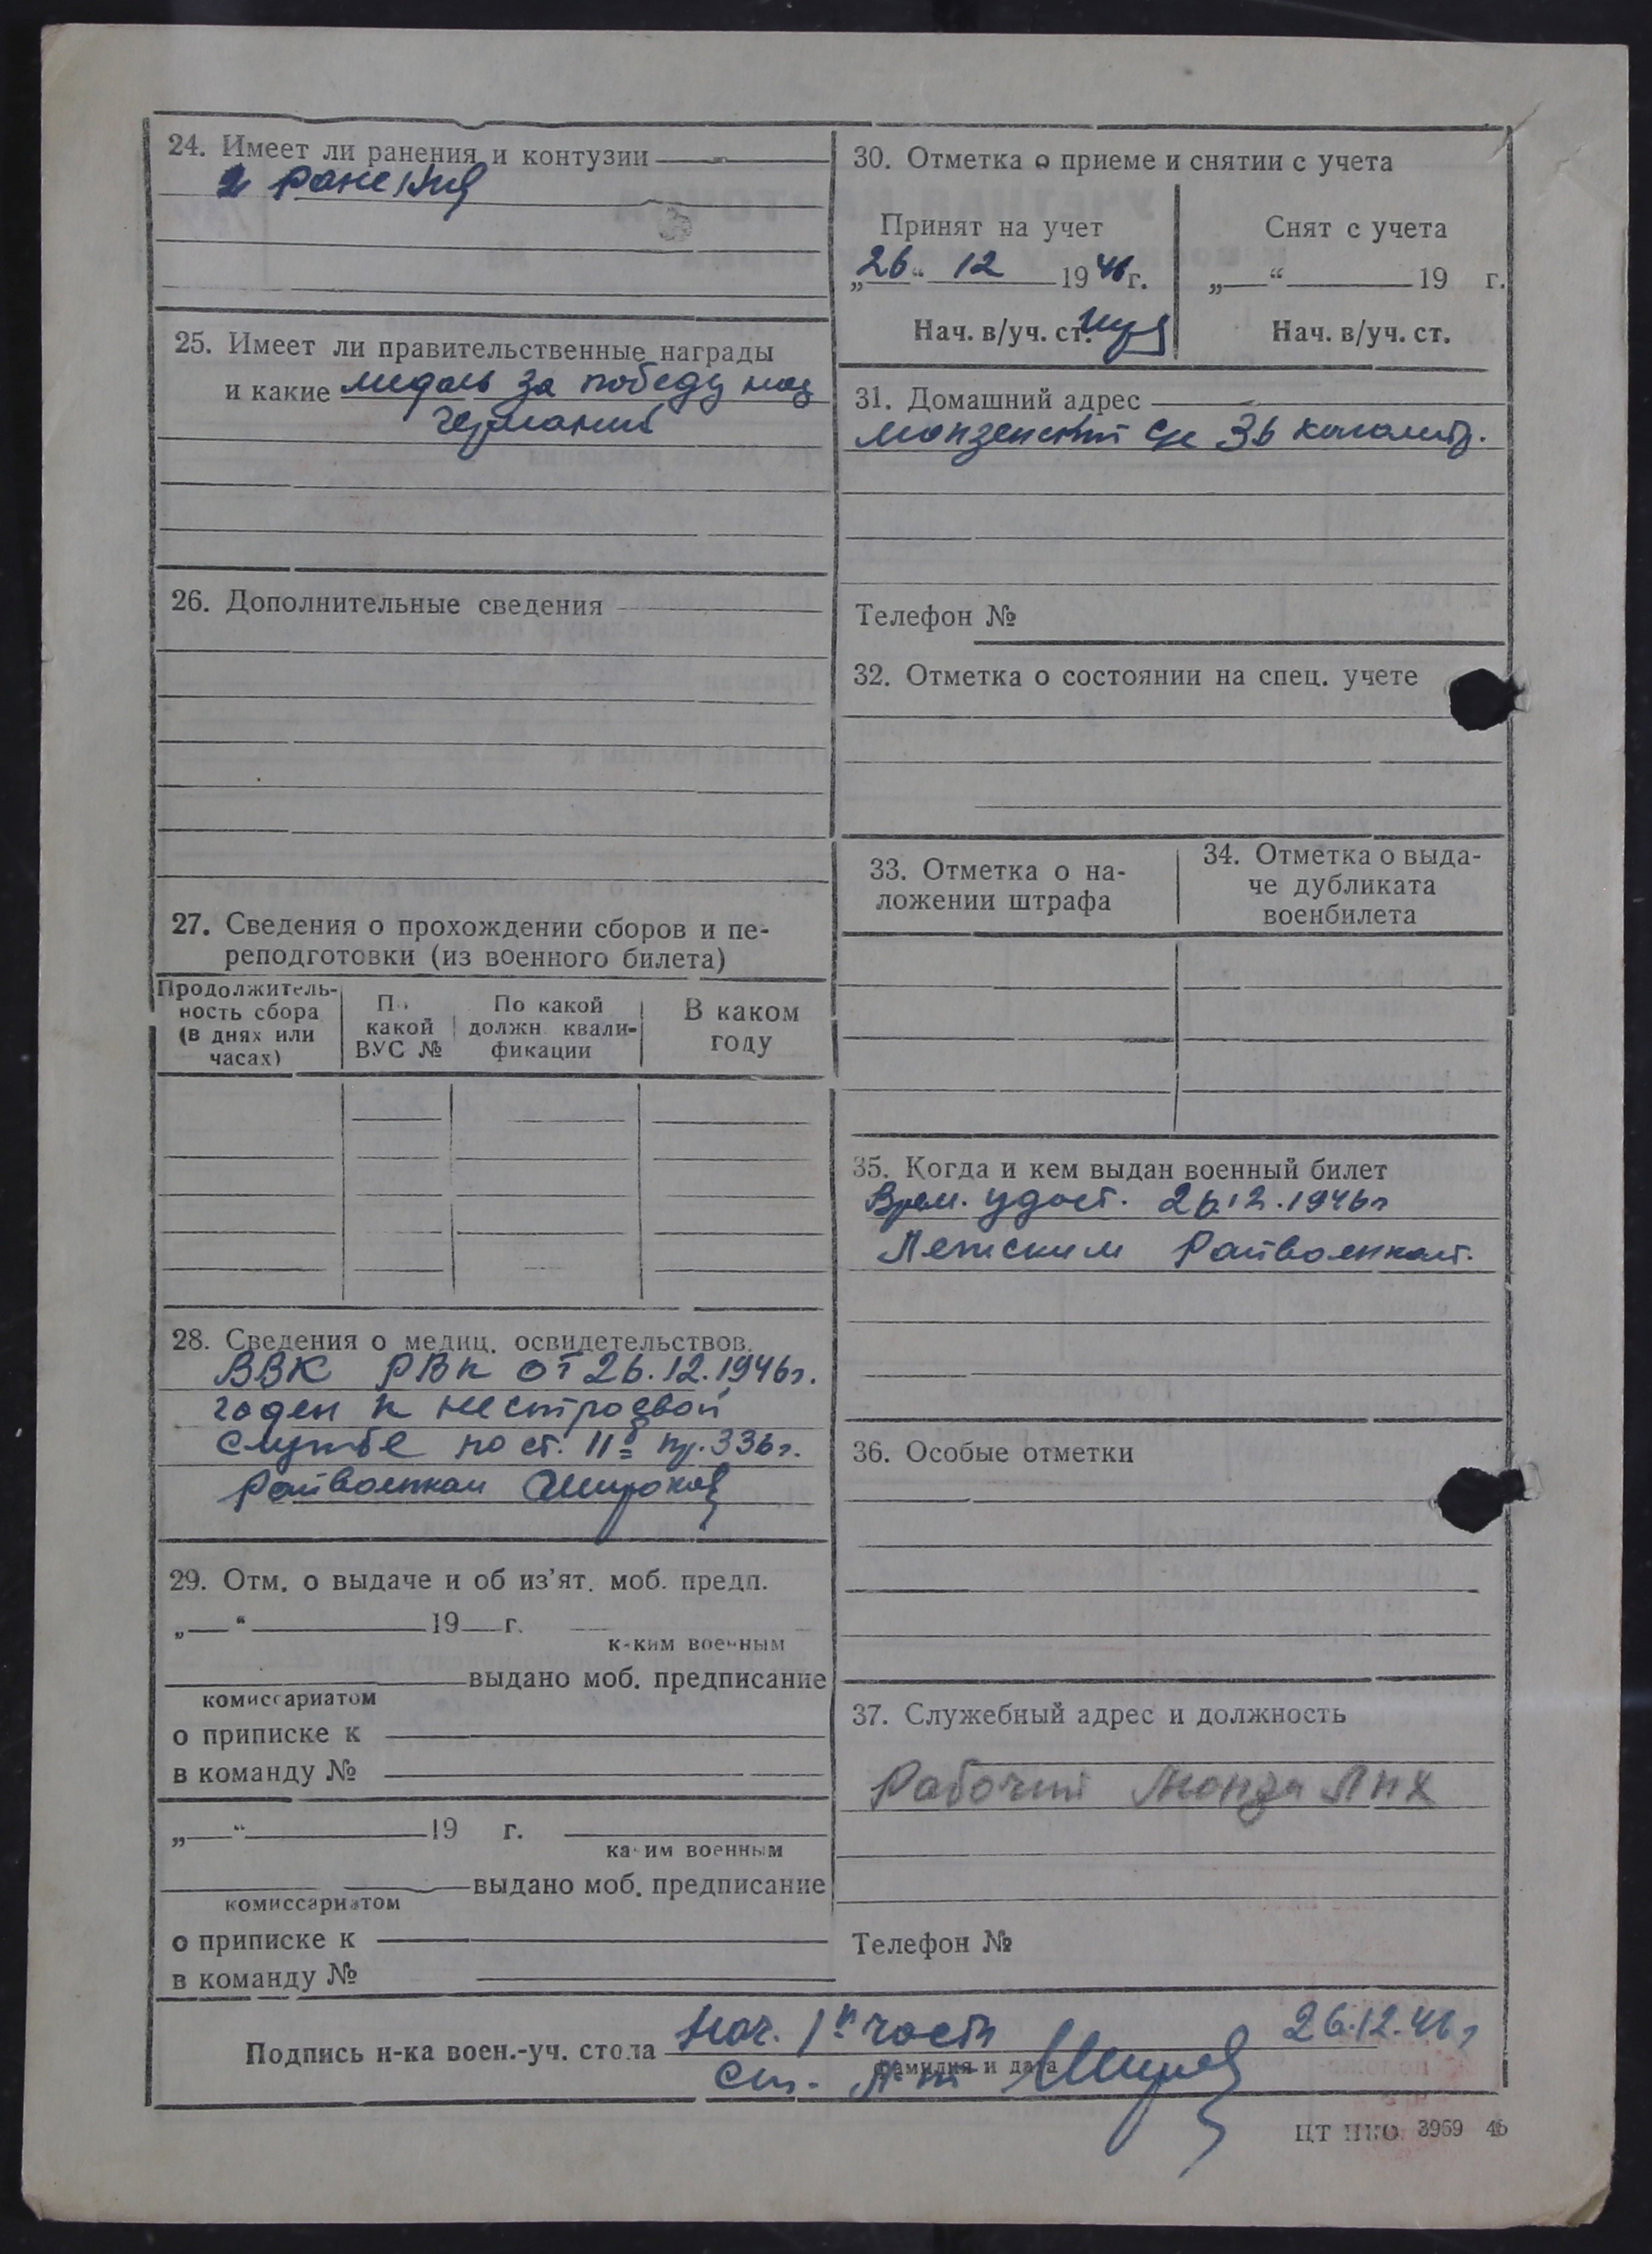 24. Имеет ли ранения и контузии
2 ранения
25. Имеет ли правительственные награды
и какие медаль за победу над
германией
26. Дополнительные сведения
27. Сведения о прохождении сборов и пе-
реподготовки (из военного билета)
Продолжитель-
ность сбора
(в днях или
часах)
По
какой
ВУС №
По какой
должн. квали-
фикации
В каком
году
28. Сведения о медиц. освидетельствов.
ВВК РВК от 26.12.1946г.
годен к нестроевой
службе по ст. II пр. 336г.
Райвоенком Широков
29. Отм. о выдаче и об из'ят. моб. предп.
„ “ 19 г.
каким военным
выдано моб. предписание
комиссариатом
о приписке к
в команду №
„ “ 19 г.
каким военным
выдано моб. предписание
комиссариатом
о приписке к
в команду №
30. Отметка о приеме и снятии с учета
Принят на учет
„26“ 12 1946г.
Нач. в/уч. ст.
Снят с учета
„ “ 19 г.
Нач. в/уч. ст.
31. Домашний адрес
Монзенский 36
Телефон №
32. Отметка о состоянии на спец. учете
33. Отметка о на-
ложении штрафа
34. Отметка о выда-
че дубликата
военбилета
35. Когда и кем выдан военный билет
Врем. удост. 26.12.1946г
Лежским Райвоенком.
36. Особые отметки
37. Служебный адрес и должность
Рабочий Монза ЛПХ
Телефон №
Подпись н-ка воен.-уч. стола Нач. 1й части 26.12.46г
фамилия и дата
Ст. Л-т
ЦТ НКО 3969 46